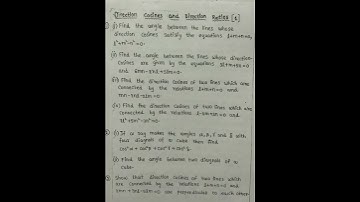 Direction Cosines and Direction Ratios [1]
1 (i) Find the angle between the lines whose
direction cosines satisfy the equations l+m+n=0,
l²+m²-n²=0.
(ii) Find the angle between the lines whose direction
cosines are given by the equations 3l+m+5n=0
and 6mn-2nl+5lm=0.
(iii) Find the direction cosines of two lines which are
connected by the relations l+m+n=0 and
mn-2nl-2lm=0.
(iv) Find the direction cosines of two lines which are
connected by the relations and
2 (i) If a ray makes the angles α, β, γ and δ with
four diagonals of a cube then find
cos²α + cos²β + cos²γ + cos²δ.
(ii) Find the angle between two diagonals of a
cube.
3 Show that direction cosines of two lines which
are connected by the relations l+m+n=0 and
are perpendicular to each other.